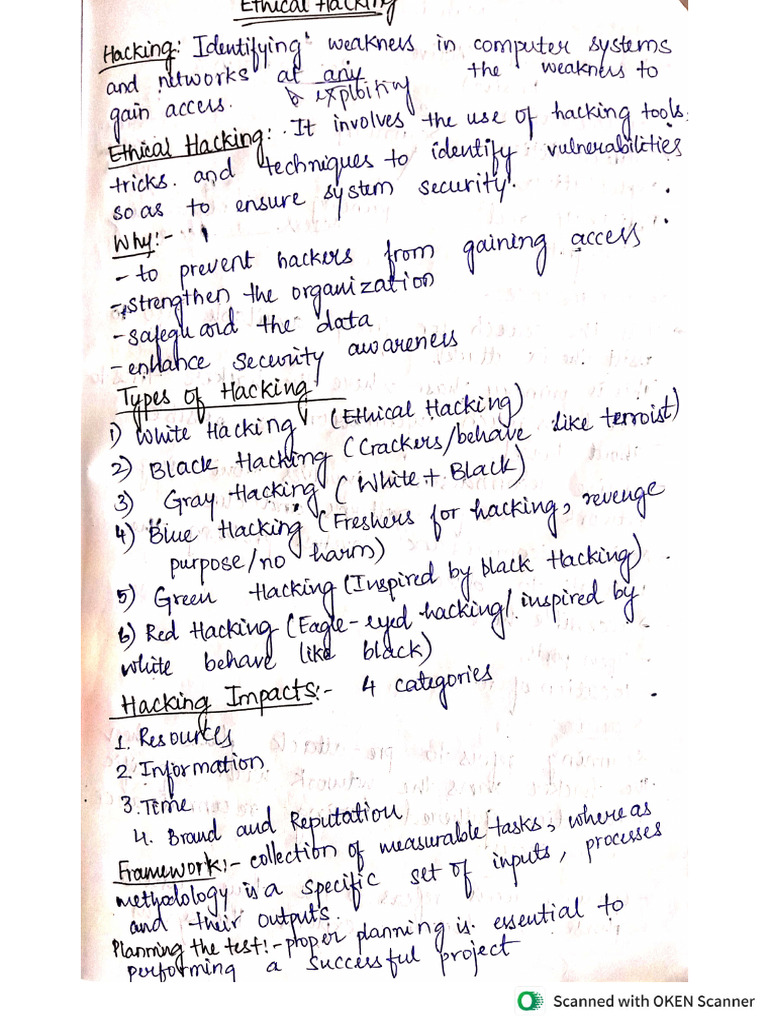 Ethical Hacking
Hacking: Identifying weakness in computer systems
and networks at any the weakness to
& exploiting
gain access.
Ethical Hacking:- It involves the use of hacking tools.
tricks. and techniques to identify vulnerabilities
so as to ensure system security.
Why:-
- to prevent hackers from gaining access
- strengthen the organization
- safeguard the data
- enhance security awareness
Types of Hacking
1) White Hacking (Ethical Hacking)
2) Black Hacking (Crackers/behave like terroist)
3) Gray Hacking (White + Black)
4) Blue Hacking (Freshers for hacking, revenge
purpose/no harm)
5) Green Hacking (Inspired by black Hacking)
6) Red Hacking (Eagle-eyed hacking/inspired by
white behave like black)
Hacking Impacts:- 4 categories
1. Resources
2. Information
3. Time
4. Brand and Reputation
Framework:- collection of measurable tasks, where as
methodology is a specific set of inputs, processes
and their outputs.
Planning the test:- proper planning is essential to
performing a successful project
Scanned with OKEN Scanner